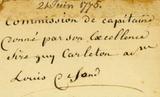 24 Juin 1778.
Commission de capitaine
donné par son Excellence
Sire guy Carleton a
Louis